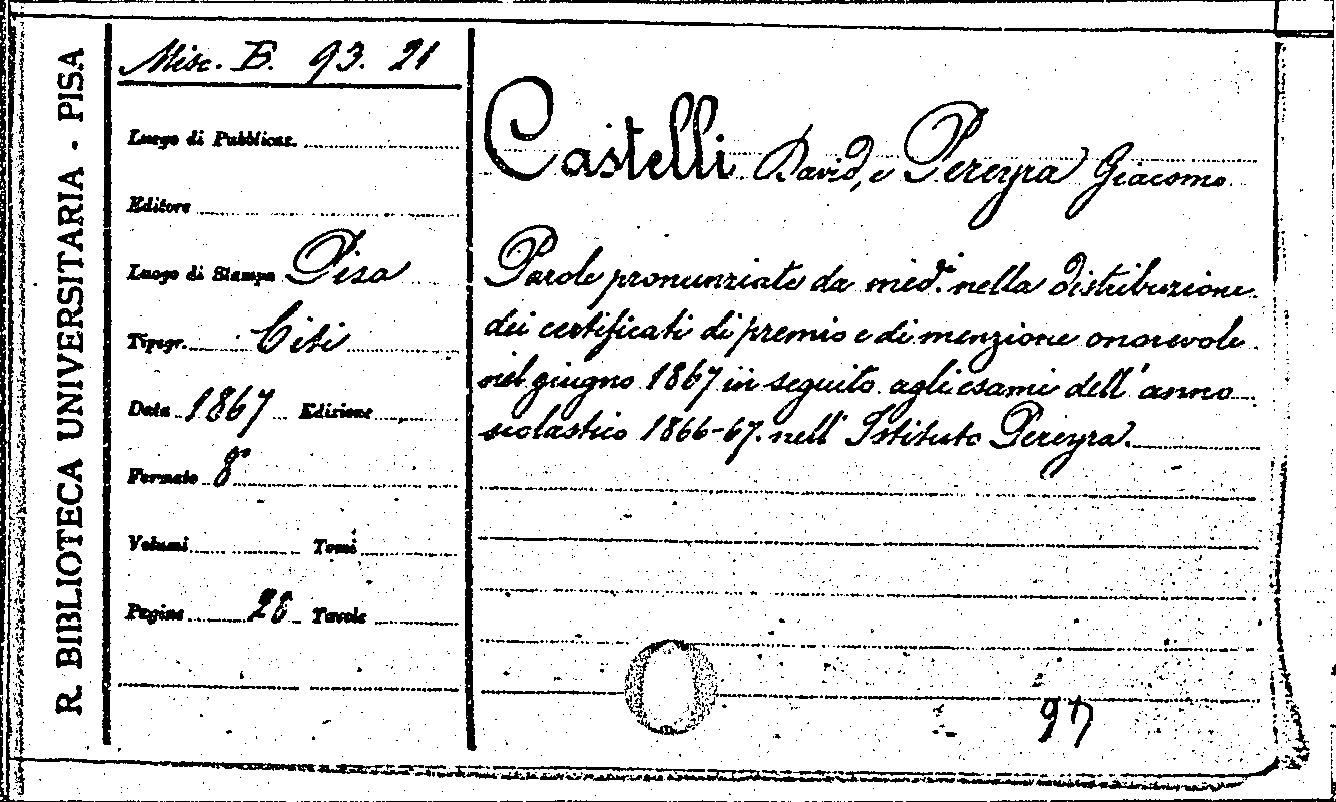 R. BIBLIOTECA UNIVERSITARIA - PISA
Misc. E. 93. 21
Luogo di Pubblicaz.
Editore
Luogo di Stampa Pisa
Tipogr. Citi
Data 1867 Edizione
Formato 8°
Volumi Tomi
Pagine 28 Tavole
Castelli David, e Pereyra Giacomo
Parole pronunziate da med.i nella distribuzione
dei certificati di premio e di menzione onorevole
nel giugno 1867 in seguito agli esami dell'anno
scolastico 1866-67. nell'Istituto Pereyra.
97